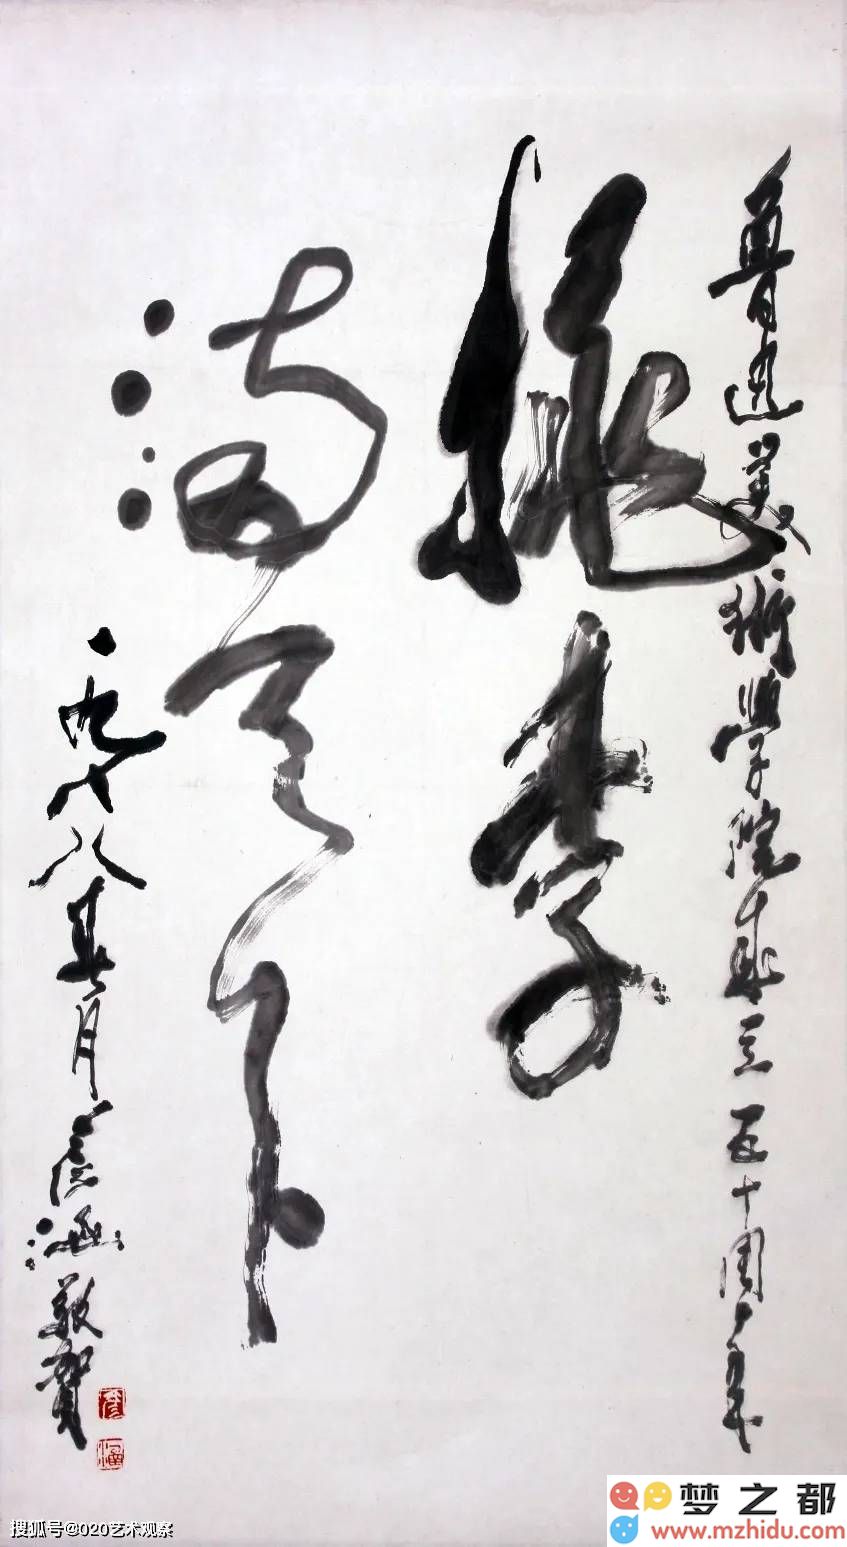 魯迅美術學院成立五十周年
桃李
滿天下
一九八八春月彦涵敬賀
搜狐号@020艺术观察
梦之都
www.mzhidu.com